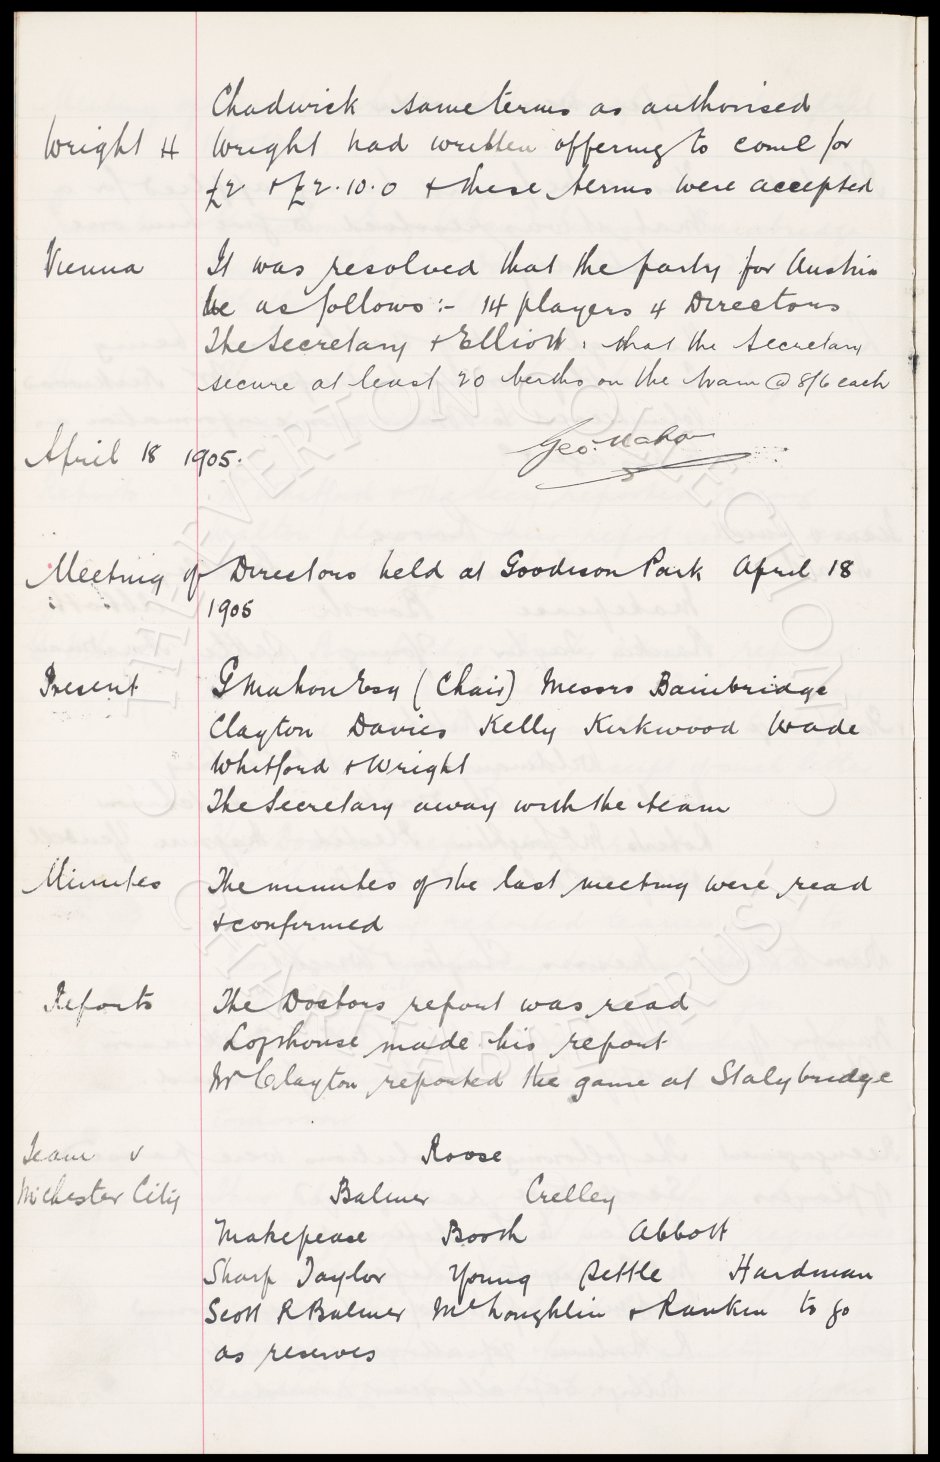 Chadwick same terms as authorised
Wright H Wright had written offering to come for
£2 + £2.10.0 + these terms were accepted
Vienna It was resolved that the party for Austria
be as follows :- 14 players 4 Directors
The Secretary + Elliott : that the Secretary
secure at least 20 berths on the tram @ 8/6 each
April 18 1905. Geo. Mahon
Meeting of Directors held at Goodison Park April 18
1905
Present G Mahon Esq (Chair) Messrs Bainbridge
Clayton Davies Kelly Kirkwood Wade
Whitford + Wright
The Secretary away with the team
Minutes The minutes of the last meeting were read
+ confirmed
Reports The Doctors report was read
Lofthouse made his report
Mr Clayton reported the game at Stalybridge
Team v Roose
M'chester City Balmer Crelley
Makepeace Booth Abbott
Sharp Taylor Young Settle Hardman
Scott R Balmer McLoughlin + Rankin to go
as reserves
THE EVERTON COLLECTION
CHARITABLE TRUST